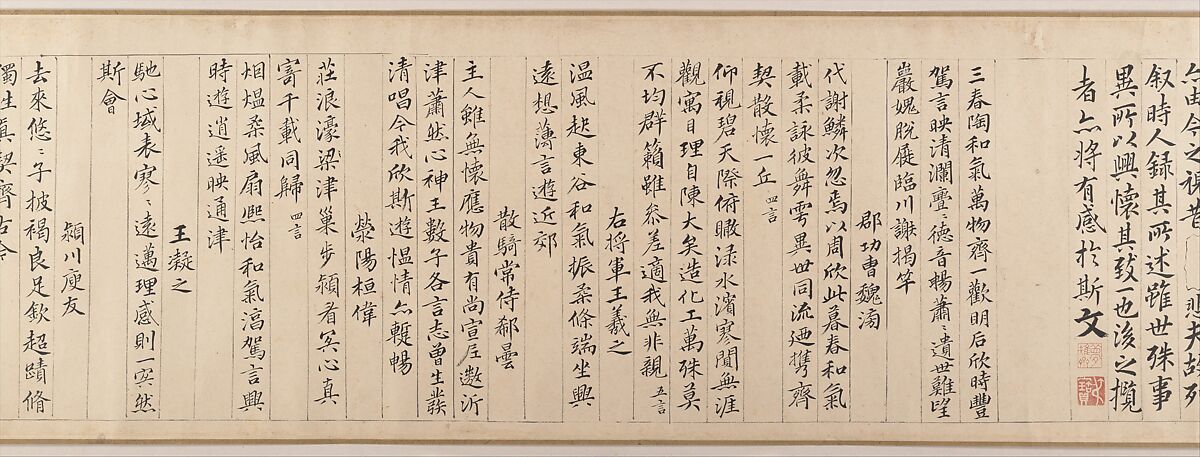 亦由今之視昔悲夫故列
叙時人錄其所述雖世殊事
異所以興懷其致一也後之攬
者亦將有感於斯文
三春陶和氣萬物齊一歡明后欣時豐
駕言映清瀾亹〻德音暢蕭〻遺世難望
巖愧脫屣臨川謝揭竿
郡功曹魏滂
代謝鱗次忽焉以周欣此暮春和氣
載柔詠彼舞雩異世同流迺攜齊
契散懷一丘 四言
仰視碧天際俯瞰淥水濱寥闃無涯
觀寓目理自陳大矣造化工萬殊莫
不均群籟雖參差適我無非親 五言
右將軍王羲之
温風起東谷和氣振柔條端坐興
遠想薄言遊近郊
散騎常侍郗曇
主人雖無懷應物貴有尚宣尼遨沂
津蕭然心神王數子各言志曾生發
清唱今我欣斯遊愠情亦蹔暢
滎陽桓偉
莊浪濠梁津巢步潁者冥心真
寄千載同歸 四言
烟熅柔風扇熈怡和氣淳駕言興
時遊逍遥映通津
王凝之
馳心域表寥〻遠邁理感則一冥然
斯會
潁川庾友
去來悠〻子披褐良足欽超蹟脩
獨往真契齊古今